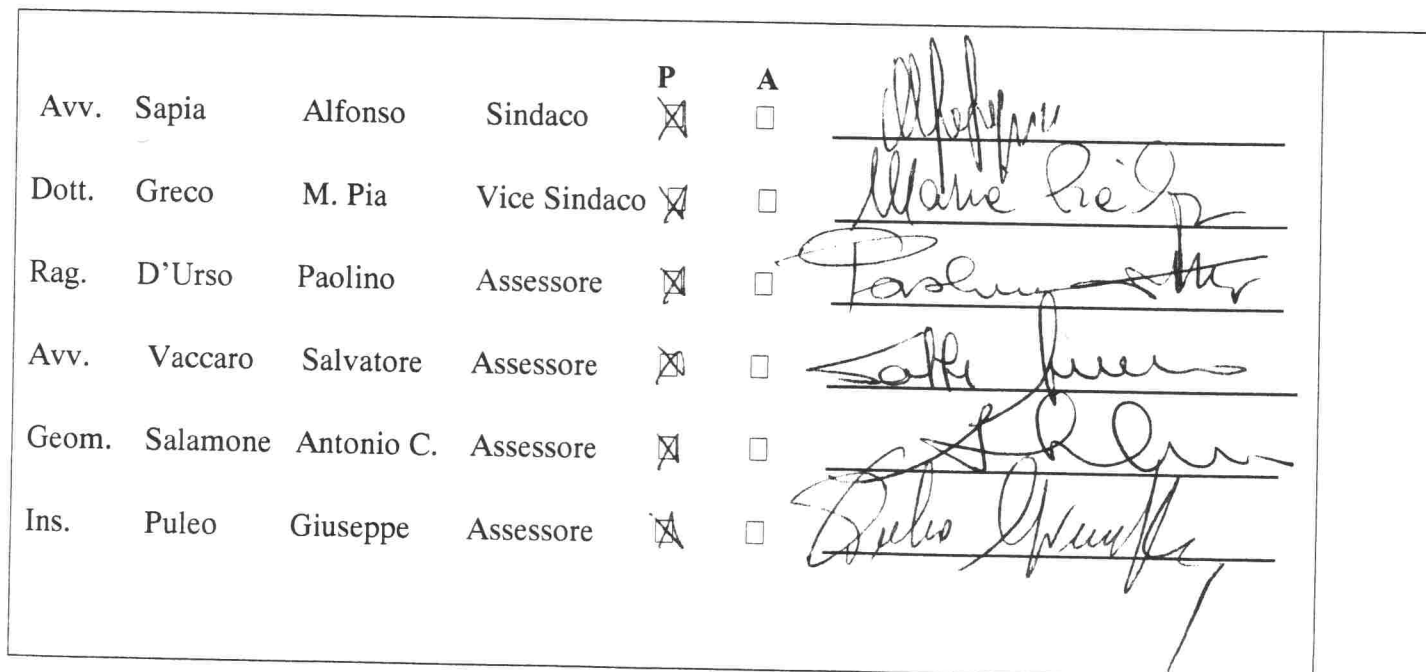 P A
Avv. Sapia Alfonso Sindaco ☒ ☐
Dott. Greco M. Pia Vice Sindaco ☒ ☐ Maria Pia
Rag. D'Urso Paolino Assessore ☒ ☐
Avv. Vaccaro Salvatore Assessore ☒ ☐
Geom. Salamone Antonio C. Assessore ☒ ☐
Ins. Puleo Giuseppe Assessore ☒ ☐ Puleo Giuseppe